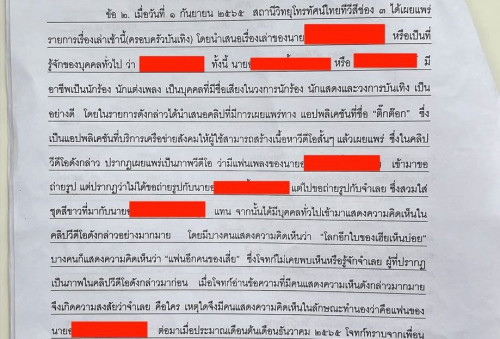 ข้อ ๒. เมื่อวันที่ ๑ กันยายน ๒๕๖๕ สถานีวิทยุโทรทัศน์ไทยทีวีสีช่อง ๓ ได้เผยแพร่
รายการเรื่องเล่าเช้านี้(ครอบครัวบันเทิง) โดยนำเสนอเรื่องเล่าของนาย หรือเป็นที่
รู้จักของบุคคลทั่วไป ว่า ทั้งนี้ นาย หรือ มี
อาชีพเป็นนักร้อง นักแต่งเพลง เป็นบุคคลที่มีชื่อเสียงในวงการนักร้อง นักแสดงและวงการบันเทิง เป็น
อย่างดี โดยในรายการดังกล่าวได้นำเสนอคลิปที่มีการเผยแพร่ทาง แอปพลิเคชันที่ชื่อ “ติ๊กต๊อก” ซึ่ง
เป็นแอปพลิเคชันที่บริการเครือข่ายสังคมให้ผู้ใช้สามารถสร้างเนื้อหาวีดีโอสั้นๆ แล้วเผยแพร่ ซึ่งในคลิป
วีดีโอดังกล่าว ปรากฏเผยแพร่เป็นภาพวีดีโอ ว่ามีแฟนเพลงของนาย เข้ามาขอ
ถ่ายรูป แต่ปรากฏว่าไม่ได้ขอถ่ายรูปกับนาย แต่ไปขอถ่ายรูปกับจำเลย ซึ่งสวมใส่
ชุดสีขาวที่มากับนาย แทน จากนั้นได้มีบุคคลทั่วไปเข้ามาแสดงความคิดเห็นใน
คลิปวีดีโอดังกล่าวอย่างมากมาย โดยมีบางคนแสดงความคิดเห็นว่า “โลกอีกใบของเฮียเห็นบ่อย”
บางคนก็แสดงความคิดเห็นว่า “แฟนอีกคนของเฮีย” ซึ่งโจทก์ไม่เคยพบเห็นหรือรู้จักจำเลย ผู้ที่ปรากฏ
เป็นภาพในคลิปวีดีโอดังกล่าวมาก่อน เมื่อโจทก์อ่านข้อความที่มีคนแสดงความเห็นดังกล่าวมากมาย
จึงเกิดความสงสัยว่าจำเลย คือใคร เหตุใดจึงมีคนแสดงความคิดเห็นในลักษณะทำนองว่าคือแฟนของ
นาย ต่อมาเมื่อประมาณเดือนต้นเดือนธันวาคม ๒๕๖๕ โจทก์ทราบจากเพื่อน